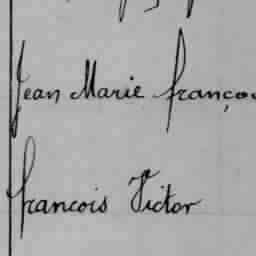 Jean Marie françou
francois Victor